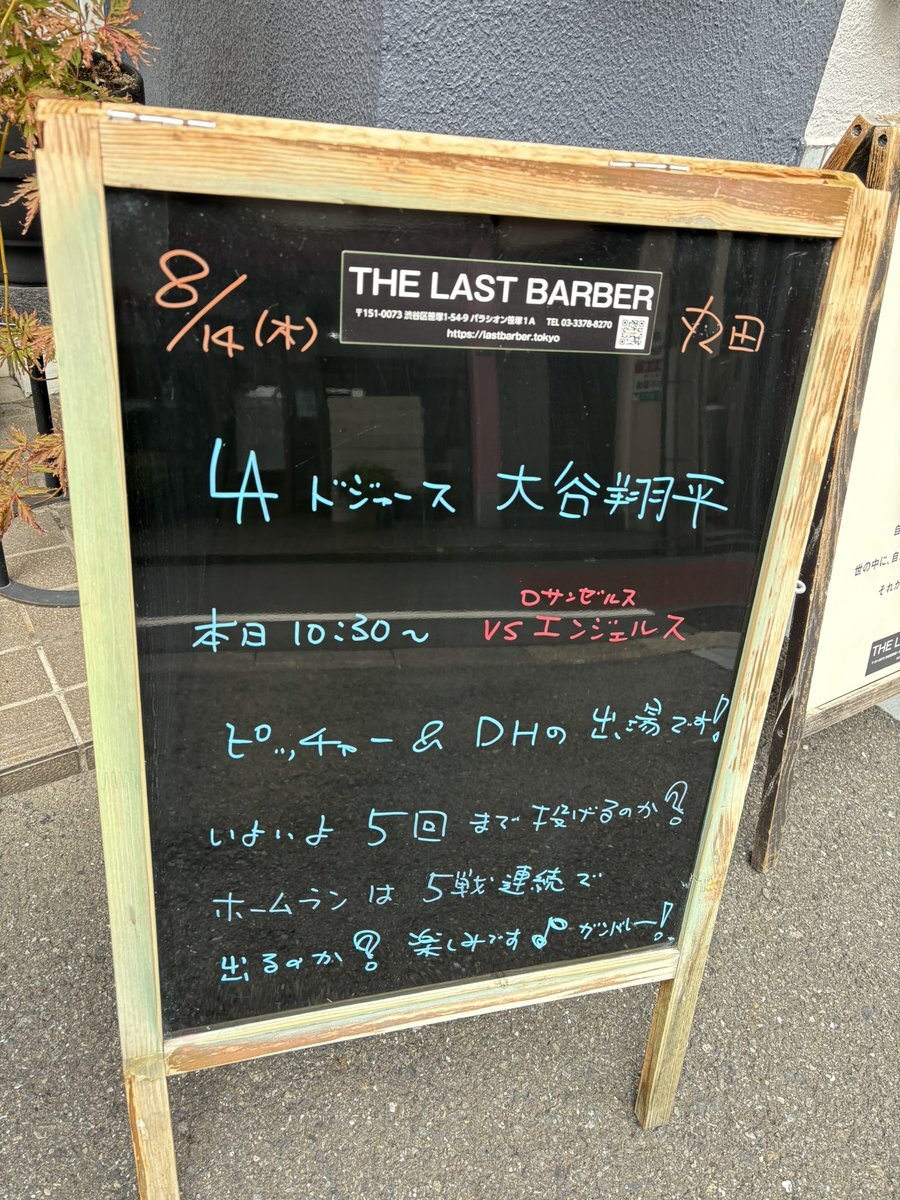 8/14(木)
THE LAST BARBER
〒151-0073 渋谷区笹塚1-54-9 パラシオン笹塚1A TEL 03-3378-8270
https://lastbarber.tokyo
丸田
LA ドジャース 大谷翔平
ロサンゼルス
本日 10:30〜 VS エンジェルス
ピッチャー & DHの出場です!
いよいよ 5回 まで投げるのか?
ホームランは 5戦連続で
出るのか? 楽しみです♪ ガンバレー!
世の中に、自
それか
THE L